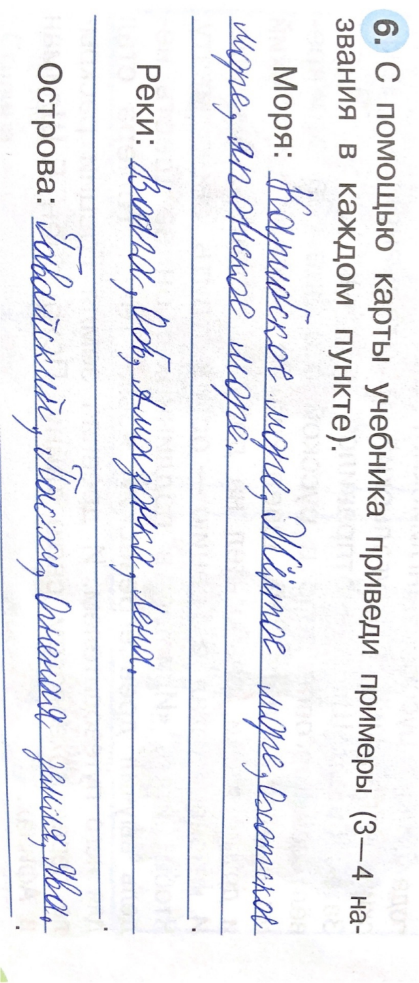 6. С помощью карты учебника приведи примеры (3—4 на-
звания в каждом пункте).
Моря: Карибское море, Жёлтое море,
море, японское море.
Реки: Волга, Обь, Амазонка, Лена.
Острова: Гавайский, Пасхи, Огненая земля, Ява.